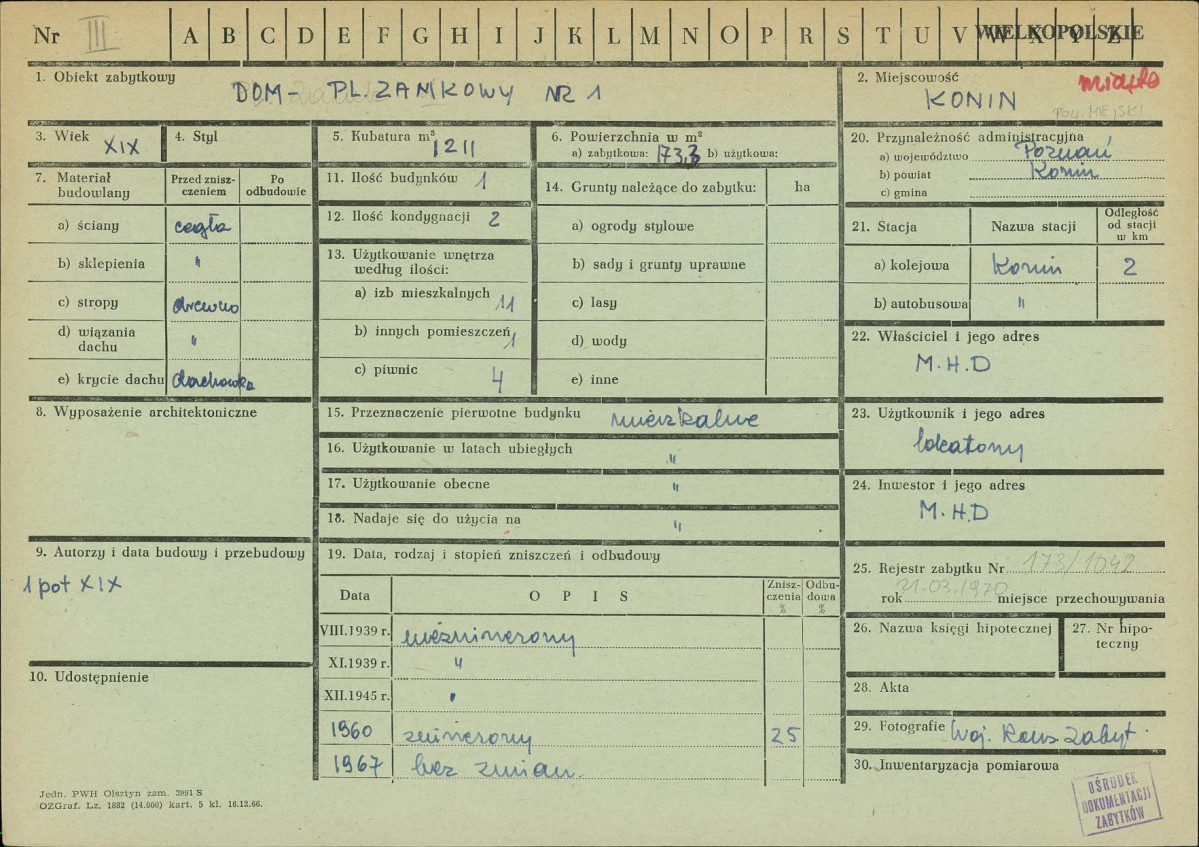 Nr III A B C D E F G H I J K L M N O P R S T U V W X Y Z WIELKOPOLSKIE
1. Obiekt zabytkowy
DOM - PL. ZAMKOWY NR 1
2. Miejscowość
miasto
KONIN
POW. MIEJSKI
3. Wiek XIX
4. Styl
5. Kubatura m³ 1211
6. Powierzchnia w m²
a) zabytkowa: 173,3 b) użytkowa:
7. Materiał budowlany
Przed zniszczeniem
Po odbudowie
a) ściany cegła
b) sklepienia "
c) stropy drewno
d) wiązania dachu "
e) krycie dachu dachówka
8. Wyposażenie architektoniczne
9. Autorzy i data budowy i przebudowy
1 poł XIX
10. Udostępnienie
11. Ilość budynków 1
12. Ilość kondygnacji 2
13. Użytkowanie wnętrza
według ilości:
a) izb mieszkalnych 11
b) innych pomieszczeń 1
c) piwnic 4
14. Grunty należące do zabytku: ha
a) ogrody stylowe
b) sady i grunty uprawne
c) lasy
d) wody
e) inne
15. Przeznaczenie pierwotne budynku mieszkalne
16. Użytkowanie w latach ubiegłych "
17. Użytkowanie obecne "
18. Nadaje się do użycia na "
19. Data, rodzaj i stopień zniszczeń i odbudowy
Data OPIS Zniszczenia % Odbudowa %
VIII.1939 r. niezniszczony
XI.1939 r. "
XII.1945 r. "
1960 zniszczony 25
1967 bez zmian.
20. Przynależność administracyjna
a) województwo Poznań
b) powiat Konin
c) gmina
21. Stacja Nazwa stacji Odległość od stacji w km
a) kolejowa Konin 2
b) autobusowa "
22. Właściciel i jego adres
M.H.D
23. Użytkownik i jego adres
lokatorzy
24. Inwestor i jego adres
M.H.D
25. Rejestr zabytku Nr 173/1042
rok 21.03.1970 miejsce przechowywania
26. Nazwa księgi hipotecznej
27. Nr hipoteczny
28. Akta
29. Fotografie Woj. Kons. Zabyt.
30. Inwentaryzacja pomiarowa
OŚRODEK
DOKUMENTACJI
ZABYTKÓW
Jedn. PWH Olsztyn zam. 3991 S
OZGraf. Lz. 1882 (14.000) kart. 5 kl. 16.12.66.